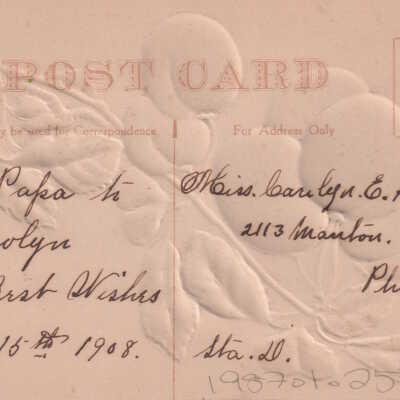 POST CARD
y be used for Correspondence
For Address Only
Papa to
olyn
Best Wishes
15th 1908.
Miss. Carilyn. E.
2113 Manton.
Ph
Sta. D.